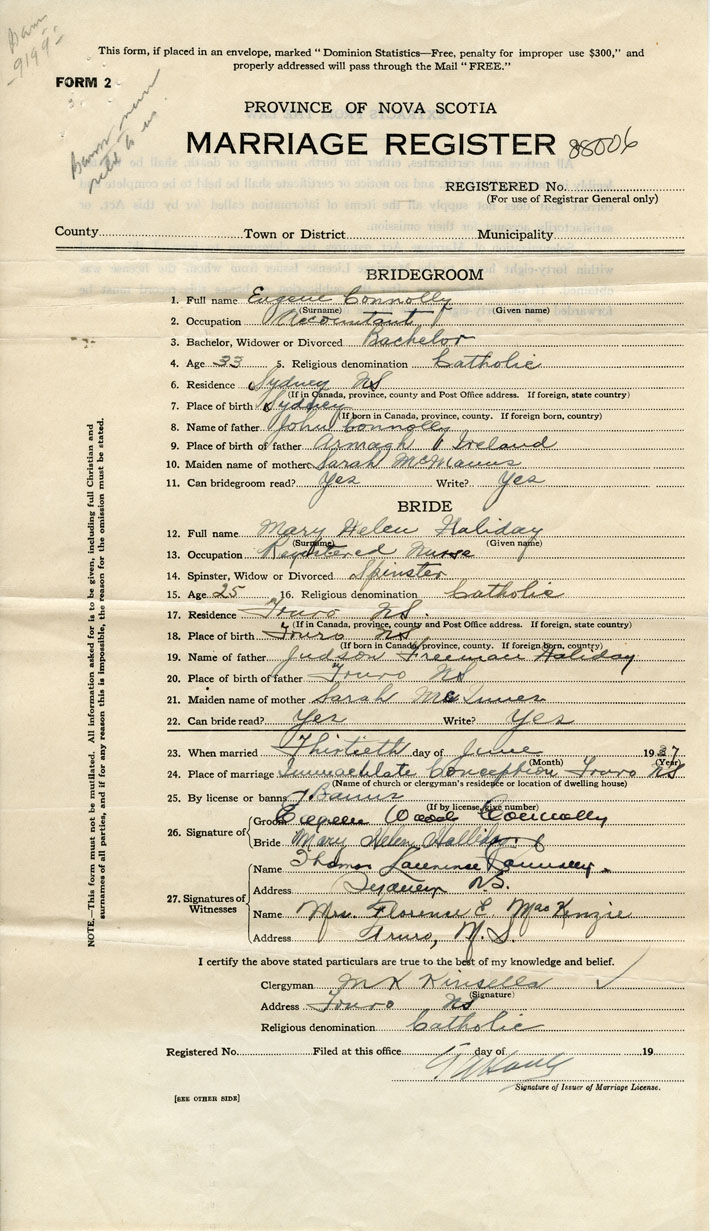 This form, if placed in an envelope, marked "Dominion Statistics—Free, penalty for improper use $300," and
properly addressed will pass through the Mail "FREE."
9199
FORM 2
PROVINCE OF NOVA SCOTIA
MARRIAGE REGISTER 88006
REGISTERED No.
(For use of Registrar General only)
County Town or District Municipality
BRIDEGROOM
1. Full name Eugene Connolly
(Surname) (Given name)
2. Occupation Accountant
3. Bachelor, Widower or Divorced Bachelor
4. Age 33 5. Religious denomination Catholic
6. Residence Sydney NS
(If in Canada, province, county and Post Office address. If foreign, state country)
7. Place of birth Sydney
(If born in Canada, province, county. If foreign born, country)
8. Name of father John Connolly
9. Place of birth of father Armagh Ireland
10. Maiden name of mother Sarah McManus
11. Can bridegroom read? Yes Write? Yes
BRIDE
12. Full name Mary Helen Haliday
(Surname) (Given name)
13. Occupation Registered Nurse
14. Spinster, Widow or Divorced Spinster
15. Age 25 16. Religious denomination Catholic
17. Residence Truro NS.
(If in Canada, province, county and Post Office address. If foreign, state country)
18. Place of birth Truro NS
(If born in Canada, province, county. If foreign born, country)
19. Name of father Judson Freeman Haliday
20. Place of birth of father Truro NS
21. Maiden name of mother Sarah
22. Can bride read? Yes Write? Yes
23. When married Thirtieth day of June 1937
(Month) (Year)
24. Place of marriage Immaculate Conception Truro NS
(Name of church or clergyman's residence or location of dwelling house)
25. By license or banns Banns
(If by license, give number)
26. Signature of
Groom Eugene Connolly
Bride Mary Helen Halliday
27. Signatures of Witnesses
Name Thomas Lawrence
Address Sydney N.S.
Name Mrs. Florence E. MacKenzie
Address Truro, N.S.
I certify the above stated particulars are true to the best of my knowledge and belief.
Clergyman M K Kinsella
(Signature)
Address Truro NS
Religious denomination Catholic
Registered No. Filed at this office day of 19
Signature of Issuer of Marriage License.
[SEE OTHER SIDE]
NOTE.—This form must not be mutilated. All information asked for is to be given, including full Christian and
surnames of all parties, and if for any reason this is impossible, the reason for the omission must be stated.